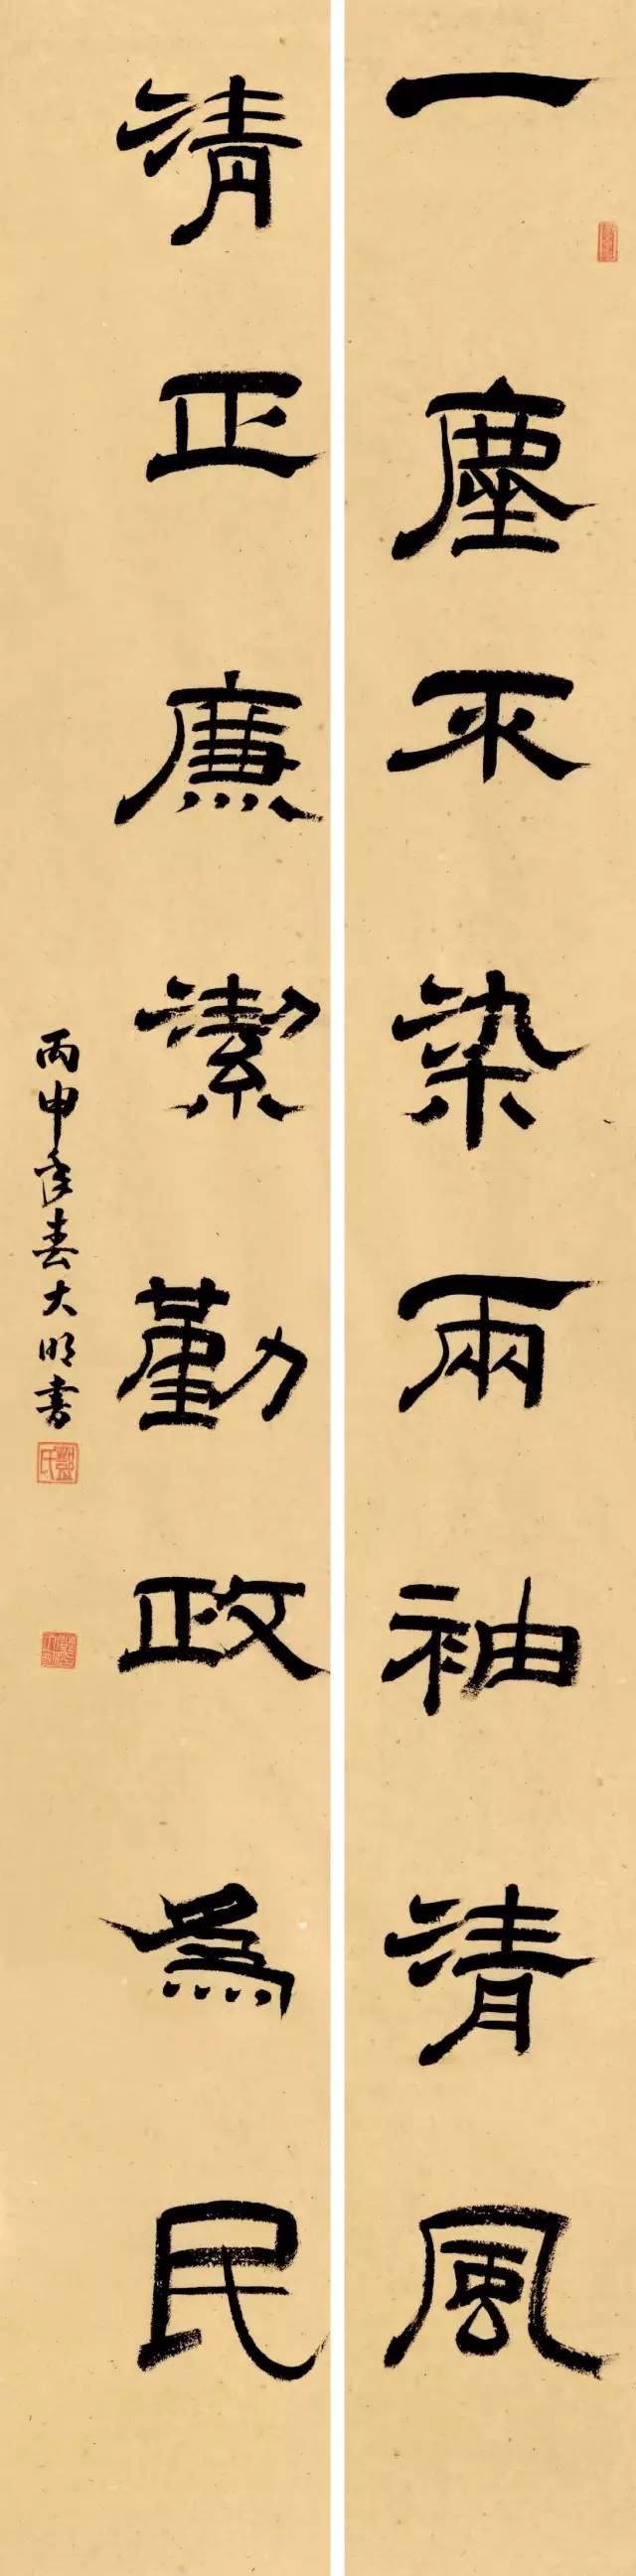 一塵不染兩袖清風
清正廉潔勤政為民
丙申年春大明書